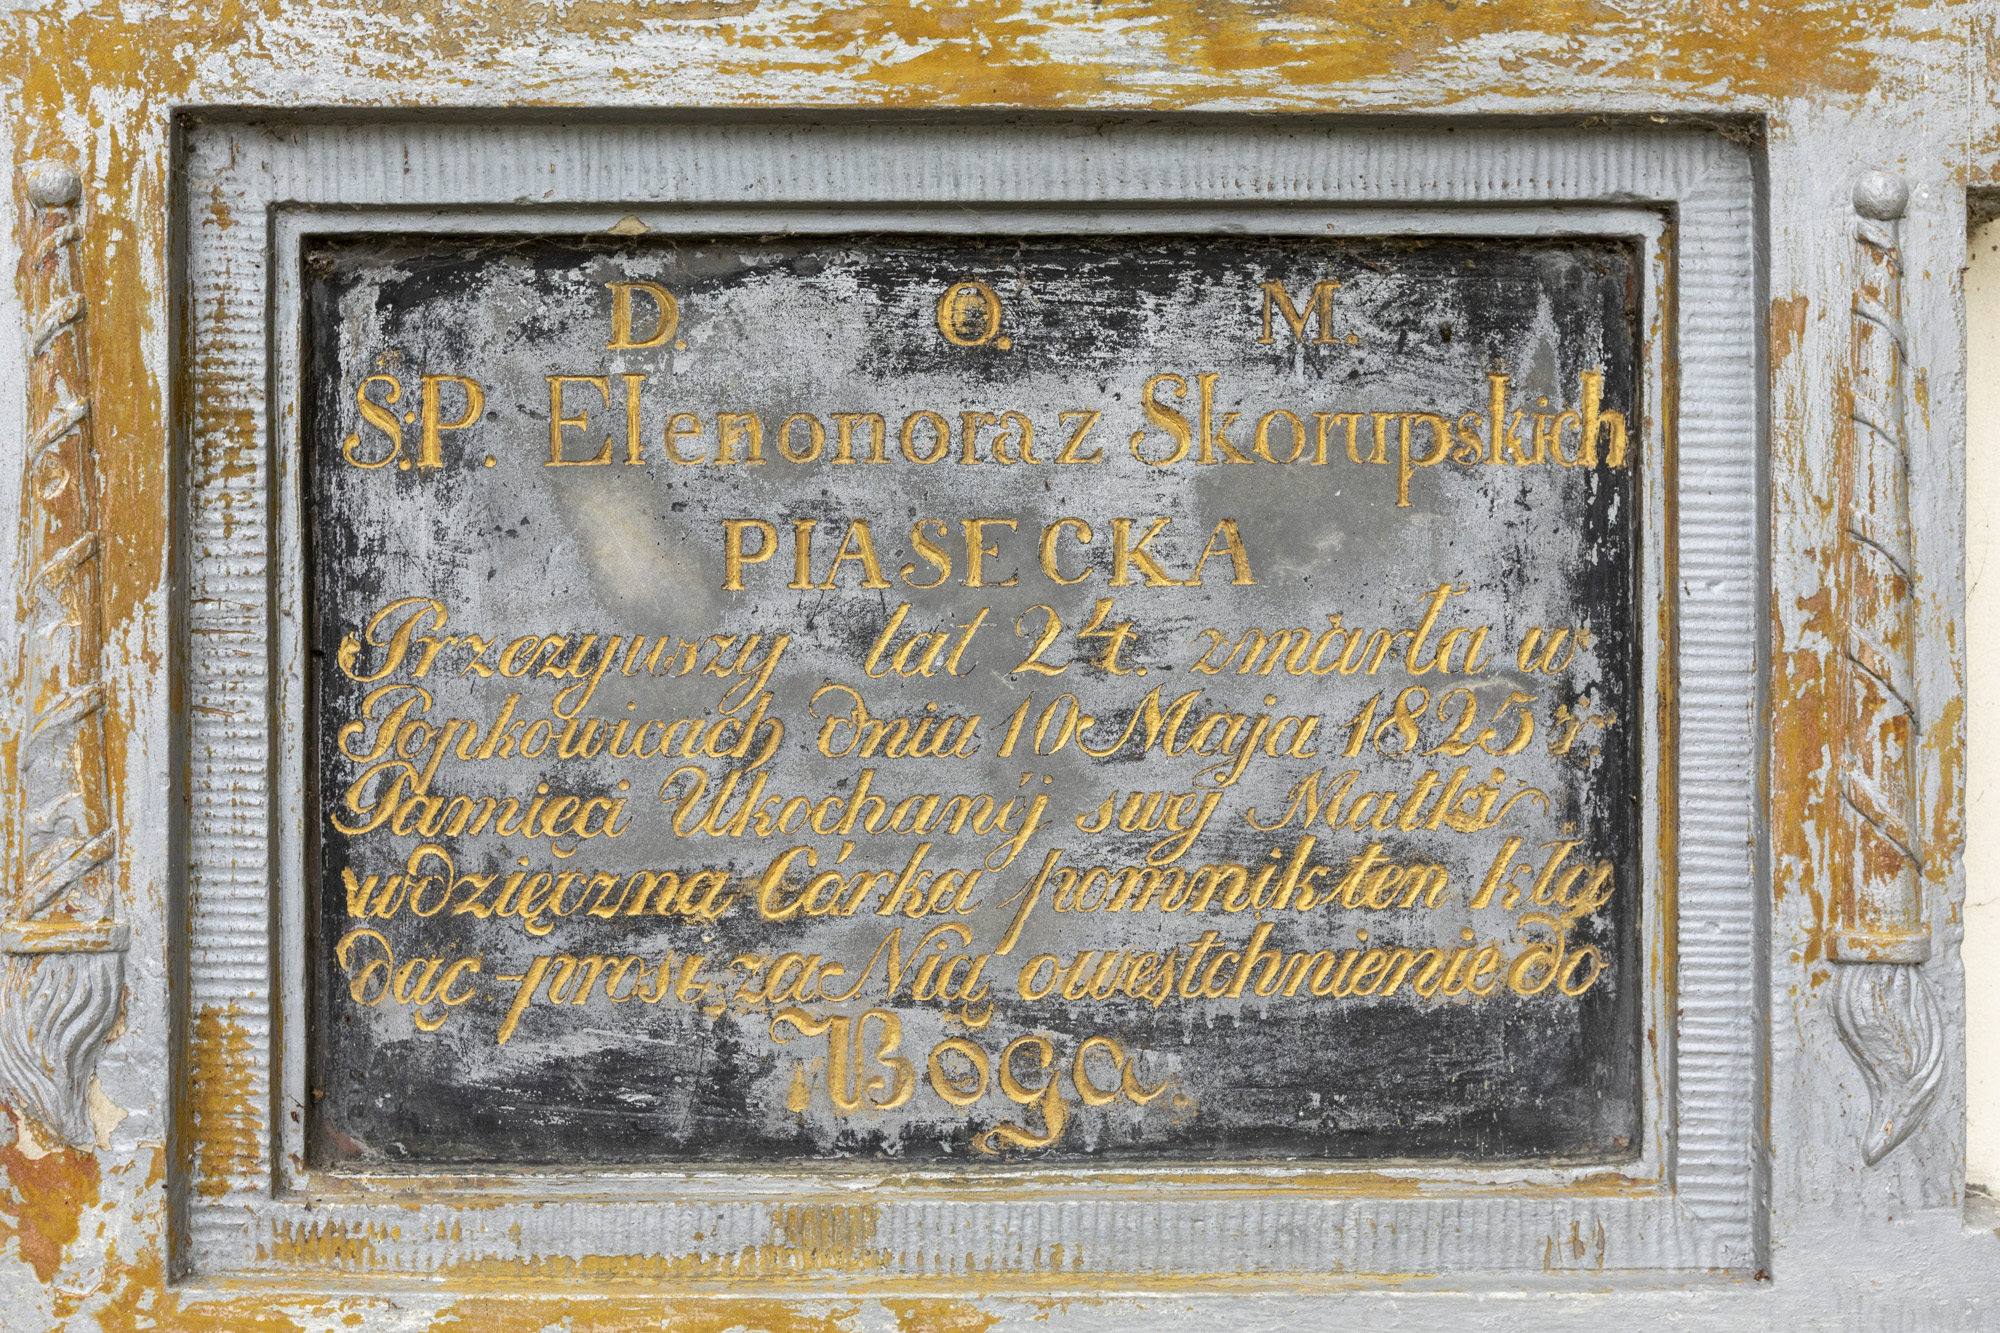 D. O. M.
Ś:P. Elenonora z Skorupskich
PIASECKA
Przezyuszy lat 24. zmàrła w
Popkowicach dniu 10 Maja 1825 r.
Pamięci Ukochanéj swej Matki
wdzięczna Córka pomnik ten kła
dąć prosi, za Nią owestchnienie do
Boga.